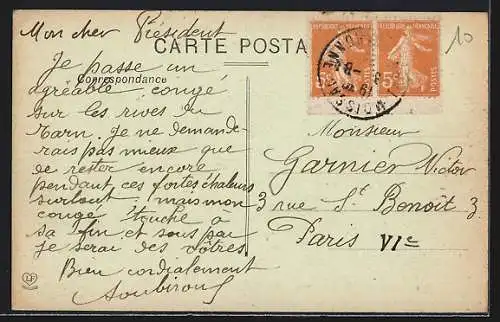 Mon cher Président
CARTE POSTA
Correspondance
Je passe un
agréable congé
sur les rives du
Tarn. Je ne demande-
rais pas mieux que
de rester encore
pendant ces fortes chaleurs
surtout; mais mon
congé touche à
sa fin et sous peu
je serai des vôtres
Bien cordialement
Soubirous
10
POSTES
5c
MOISSAC
Monsieur
Garnier Victor
3 rue St Benoît 3
Paris VIe
LF